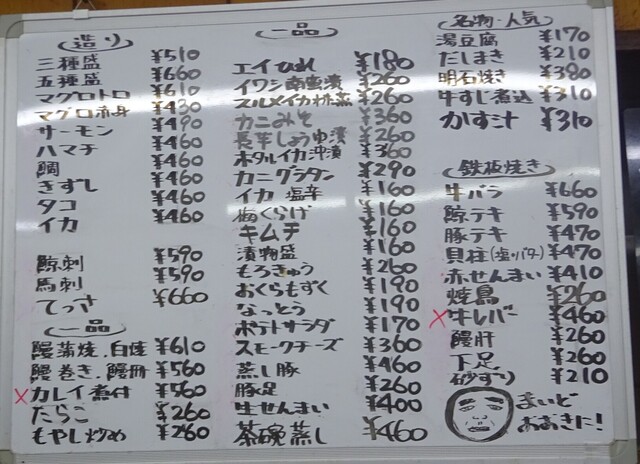 造り
三種盛 ¥510
五種盛 ¥660
マグロトロ ¥610
マグロ赤身 ¥430
サーモン ¥490
ハマチ ¥460
鯛 ¥460
きずし ¥460
タコ ¥460
イカ ¥460
鯨刺 ¥590
馬刺 ¥590
てっさ ¥660
一品
鰻蒲焼.白焼 ¥610
鰻巻き.鰻冊 ¥560
×カレイ煮付 ¥560
たらこ ¥260
もやし炒め ¥260
一品
エイひれ ¥180
イワシ南蛮漬 ¥260
スルメイカ ¥260
カニみそ ¥360
長芋しょうゆ漬 ¥260
ホタルイカ沖漬 ¥360
カニグラタン ¥290
イカ塩辛 ¥160
梅くらげ ¥160
キムチ ¥160
漬物盛 ¥160
もろきゅう ¥260
おくらもずく ¥190
なっとう ¥190
ポテトサラダ ¥170
スモークチーズ ¥360
蒸し豚 ¥460
豚足 ¥260
生せんまい ¥400
茶碗蒸し ¥460
名物・人気
湯豆腐 ¥170
だしまき ¥210
明石焼き ¥380
牛すじ煮込 ¥310
かす汁 ¥310
鉄板焼き
牛バラ ¥660
鯨テキ ¥590
豚テキ ¥470
貝柱(塩・バター) ¥470
赤せんまい ¥410
焼鳥 ¥260
×牛レバー ¥460
鰻肝 ¥260
下足 ¥260
砂ずり ¥210
まいど
おおきに!